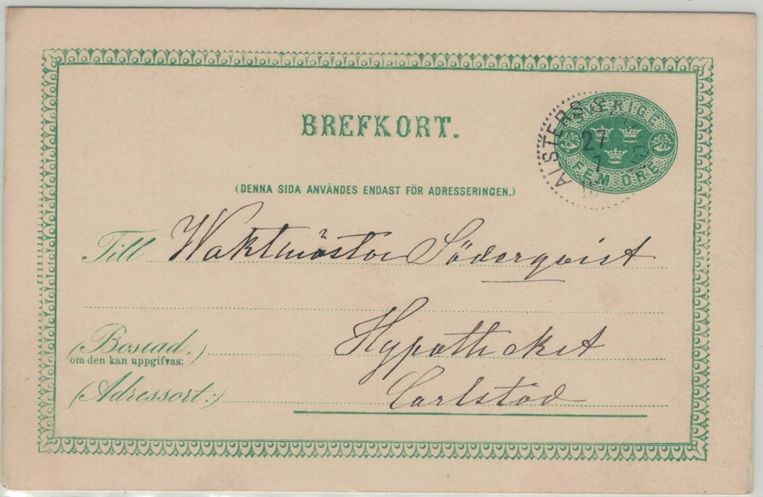 BREFKORT.
SVERIGE
FEM ÖRE
ALSTERS
27
7
(DENNA SIDA ANVÄNDES ENDAST FÖR ADRESSERINGEN.)
Till Waktmästor Söderqvist
(Bostad,)
om den kan uppgifvas:
Hypotheket
(Adressort:) Carlstad